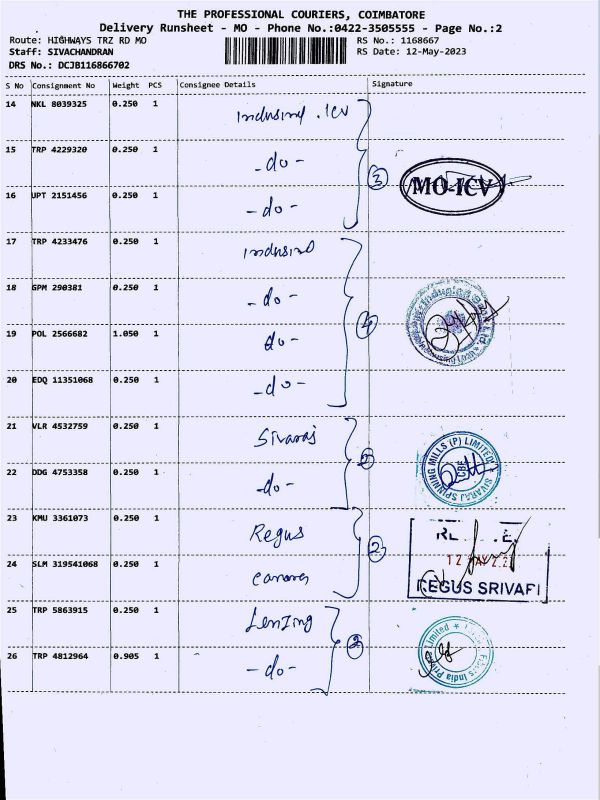 THE PROFESSIONAL COURIERS, COIMBATORE
Delivery Runsheet - MO - Phone No.:0422-3505555 - Page No.:2
Route: HIGHWAYS TRZ RD MO RS No.: 1168667
Staff: SIVACHANDRAN RS Date: 12-May-2023
DRS No.: DCJB116866702
S No Consignment No Weight PCS Consignee Details Signature
14 NKL 8039325 0.250 1 Indusind .ICV
15 TRP 4229320 0.250 1 -do-
3 MO-ICV
16 UPT 2151456 0.250 1 -do-
17 TRP 4233476 0.250 1 Indusind
18 GPM 290381 0.250 1 -do-
4
19 POL 2566682 1.050 1 do-
20 EDQ 11351068 0.250 1 -do-
21 VLR 4532759 0.250 1 Sivaraj
SIVARAJ SPINNING MILLS (P) LIMITED
22 DDG 4753358 0.250 1 -do-
23 KMU 3361073 0.250 1 Regus
2
24 SLM 319541068 0.250 1
REGUS SRIVARI
25 TRP 5863915 0.250 1 Lenzing
2
26 TRP 4812964 0.905 1 -do-